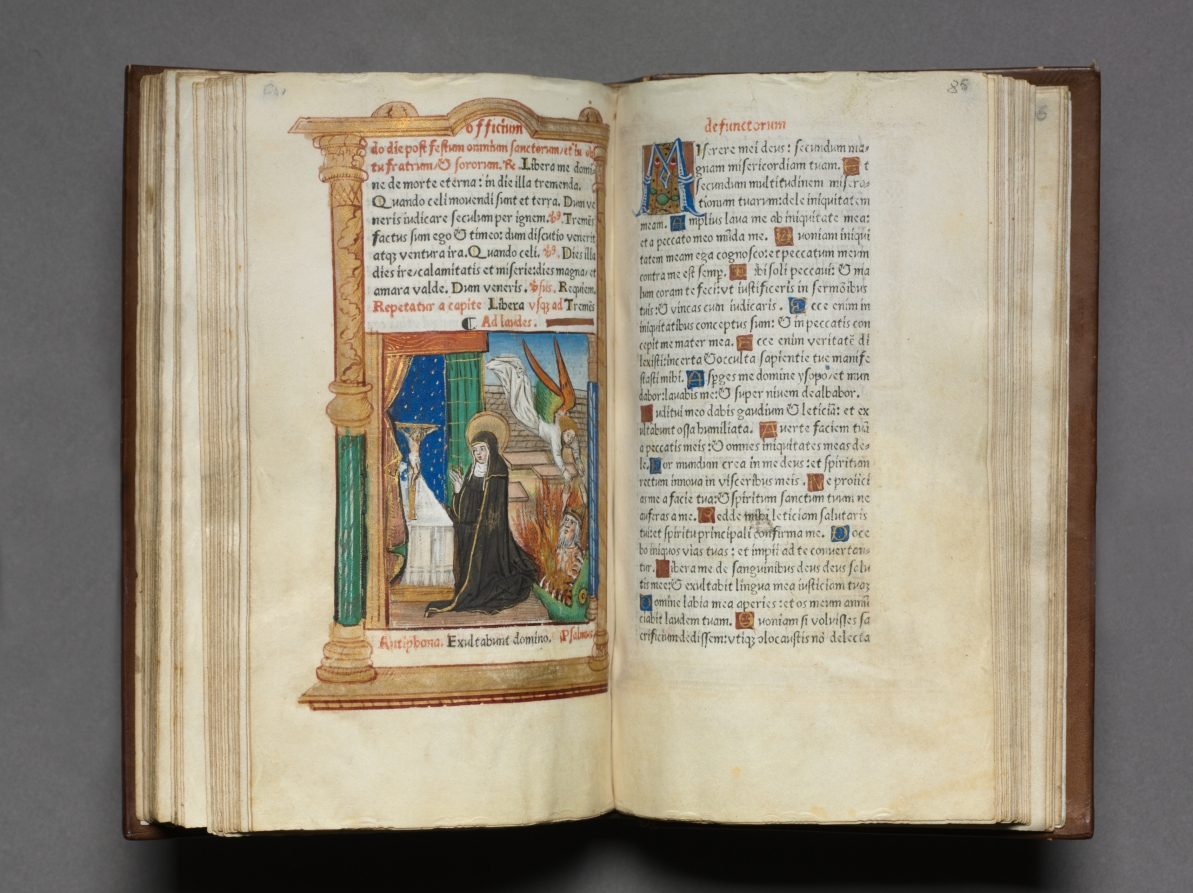 officium
do die post festum omnium sanctorum/et in ob
tu fratrum/& sororum. ℞. Libera me domi
ne de morte eterna: in die illa tremenda.
Quando celi mouendi sunt et terra. Dum ve
neris iudicare seculum per ignem. ℣. Tremēs
factus sum ego & timeo: dum discutio venerit
atq; ventura ira. Quando celi. ℣. Dies illa
dies ire/calamitatis et miserie: dies magna/et
amara valde. Dum veneris. Requiem.
Repetatur a capite Libera vsq; ad Tremēs
¶. Ad laudes.
Antiphona. Exultabunt domino. Psalmus.
85
defunctorum
MIserere mei deus: secundum ma-
gnam misericordiam tuam. Et
secundum multitudinem misera-
tionum tuarum: dele iniquitatem
meam. Amplius laua me ab iniquitate mea:
et a peccato meo mūda me. Quoniam iniqui
tatem meam ego cognosco: et peccatum meum
contra me est semp. Tibi soli peccaui: & ma
lum coram te feci: vt iustificeris in sermōibus
tuis: & vincas cum iudicaris. Ecce enim in
iniquitatibus conceptus sum: & in peccatis con
cepit me mater mea. Ecce enim veritatē di
lexisti: incerta & occulta sapientie tue manife
stasti mihi. Asperges me domine ysopo/et mun
dabor: lauabis me: & super niuem dealbabor.
Auditui meo dabis gaudium & leticiā: et ex
ultabunt ossa humiliata. Auerte faciem tuā
a peccatis meis: & omnes iniquitates meas de-
le. Cor mundum crea in me deus: et spiritum
rectum innoua in visceribus meis. Ne proiici
as me a facie tua: & spiritum sanctum tuum ne
auferas a me. Redde mihi leticiam salutaris
tui: et spiritu principali confirma me. Doce
bo iniquos vias tuas: et impii ad te conuerten-
tur. Libera me de sanguinibus deus deus salu
tis mee: & exultabit lingua mea iusticiam tuā;
Domine labia mea aperies: et os meum annū
ciabit laudem tuam. Quoniam si voluisses sa
crificium dedissem: vtiq; olocaustis nō delecta